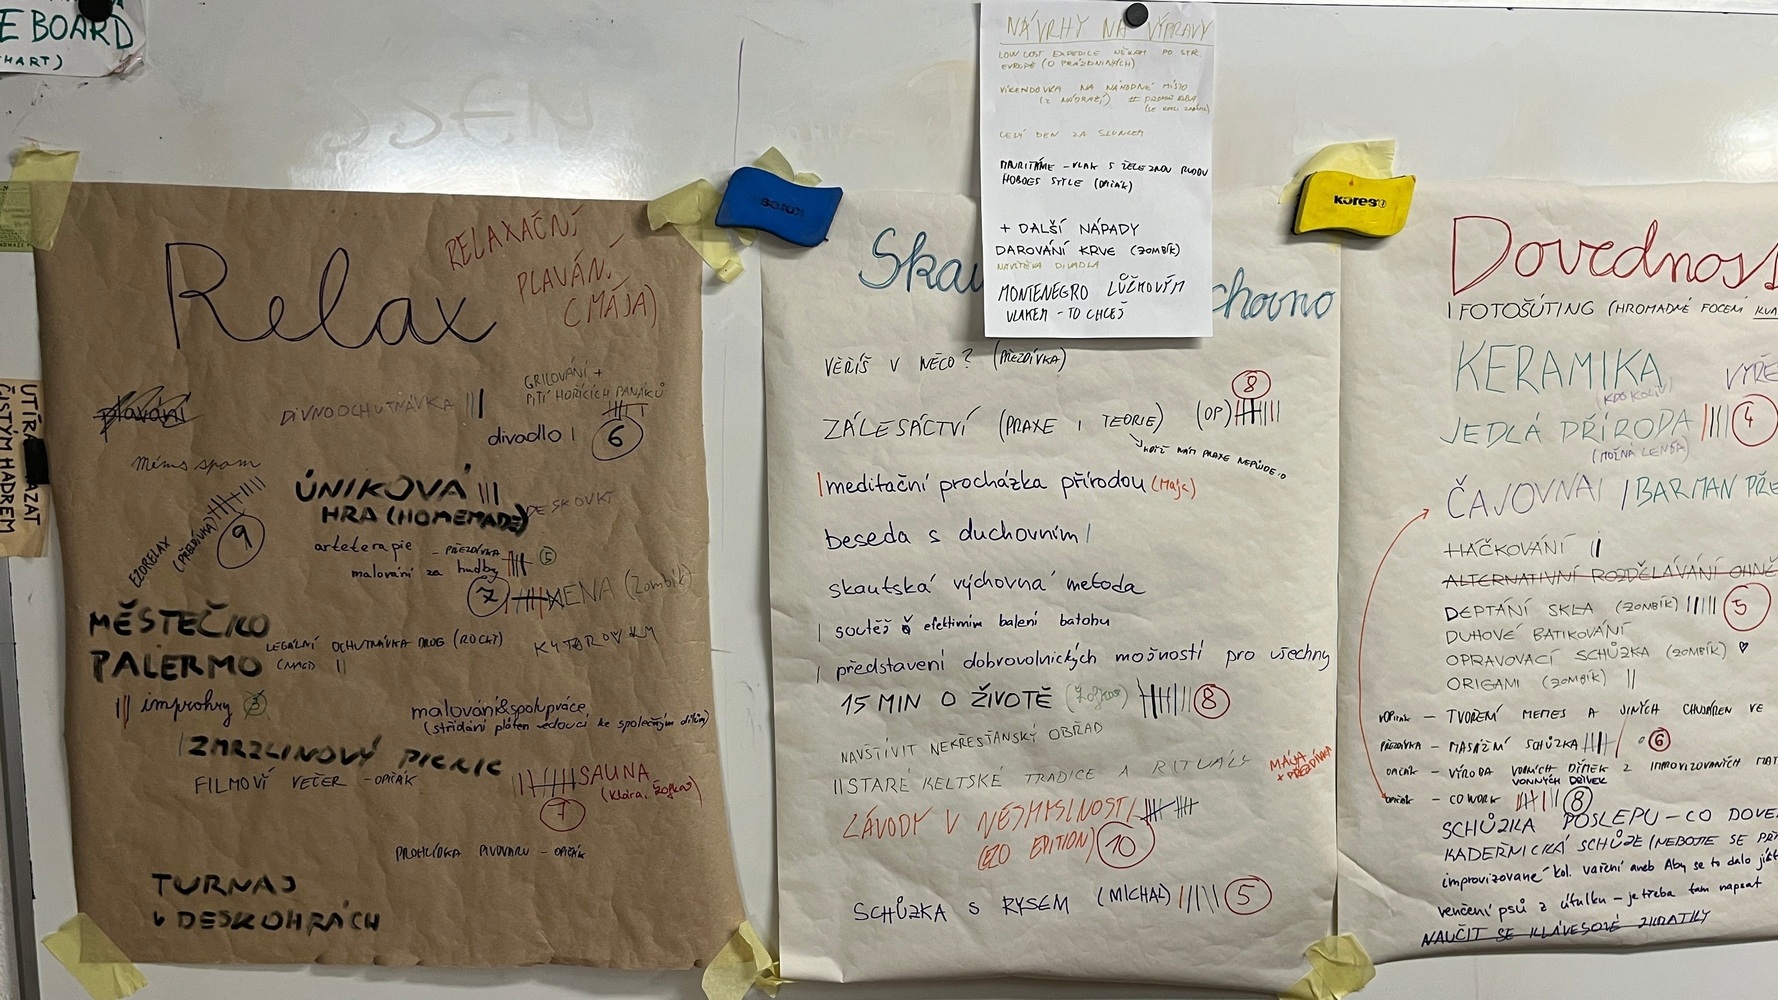 E BOARD
HART)
UTÍRA
MAZAT
ČISTÝM HADREM
Relax
RELAXAČNÍ
PLAVÁNÍ
(MÁJA)
plavání
DIVNOOCHUTNÁVKA |||
GRILOVÁNÍ +
PITÍ HOŘÍCÍCH PANÁKŮ
divadlo |
6
Mems spam
ÚNIKOVÁ |||
HRA (HOMEMADE)
DESKOVKY
EZORELAX
(PŘEZDÍVKA)
9
arteterapie - PŘEZDÍVKA
malování za hudby
5
7
MENA (Zombík)
MĚSTEČKO
PALERMO
LEGÁLNÍ OCHUTNÁVKA DROG (ROCKY)
(MAGD) ||
KYTAROVKY
||| improhry 3
malování&spolupráce
(střídání pláten vedoucí ke společným dílům)
| ZMRZLINOVÝ PICNIC
FILMOVÍ VEČER - OPIČÁK
SAUNA
(Klára, Žofka)
7
PROHLÍDKA PIVOVARU - OPIČÁK
TURNAJ
V DESKOHRÁCH
NÁVRHY NA VÝPRAVY
LOW COST EXPEDICE NĚKAM PO STŘ.
EVROPĚ (O PRÁZDNINÁCH)
VÍKENDOVKA NA NÁHODNÉ MÍSTO
(Z NÁDRAŽÍ)
CELÝ DEN ZA SLUNCEM
MAURITÁNIE - VLAK S ŽELEZNOU RUDOU
HOBOES STYLE (OPIČÁK)
+ DALŠÍ NÁPADY
DAROVÁNÍ KRVE (ZOMBÍK)
NÁVŠTĚVA DIVADLA
MONTENEGRO LŮŽKOVÝM
VLAKEM - TO CHCEŠ
Ska
chovno
VĚŘÍŠ V NĚCO? (PŘEZDÍVKA)
8
ZÁLESÁCTVÍ (PRAXE I TEORIE) (OP)
KDYŽ NÁM PRAXE NEPŮJDE :D
| meditační procházka přírodou (Mája)
beseda s duchovním |
skautská výchovná metoda
| soutěž v efektivním balení batohu
| představení dobrovolnických možností pro všechny
15 MIN O ŽIVOTĚ (Žofka) 8
NAVŠTÍVIT NEKŘESŤANSKÝ OBŘAD
|| STARÉ KELTSKÉ TRADICE A RITUÁLY
MÁJA
+ PŘEZDÍVKA
ZÁVODY V NESMYSLNOSTI
(EZO EDITION) 10
SCHŮZKA S RYSEM (MICHAL) 5
koreso
Dovednost
| FOTOŠŮTING (HROMADNÉ FOCENÍ KVA
KERAMIKA
(KDOKOLIV)
VYŘE
JEDLÁ PŘÍRODA |||| 4
(MOŽNÁ LENDA)
ČAJOVNA | | BARMAN PŘE
HÁČKOVÁNÍ ||
ALTERNATIVNÍ ROZDĚLÁVÁNÍ OHNĚ
DEPTÁNÍ SKLA (ZOMBÍK) ||||| 5
DUHOVÉ BATIKOVÁNÍ
OPRAVOVACÍ SCHŮZKA (ZOMBÍK) ♥
ORIGAMI (ZOMBÍK) ||
OPIČÁK - TVOŘENÍ MEMES A JINÝCH CHUJÁREN VE
PŘEZDÍVKA - MASÁŽNÍ SCHŮZKA 6
OPIČÁK - VÝROBA VODNÍCH DÝMEK Z IMPROVIZOVANÝCH MAT
VONNÝCH DÝMEK
OPIČÁK - COWORK 8
SCHŮZKA POSLEPU - CO DOVE
KADEŘNICKÁ SCHŮZE (NEBOJTE SE PŘ
improvizované kol. vaření aneb Aby se to dalo jíst
venčení psů z útulku - je třeba tam napsat
NAUČIT SE KLÁVESOVÉ ZKRATKY